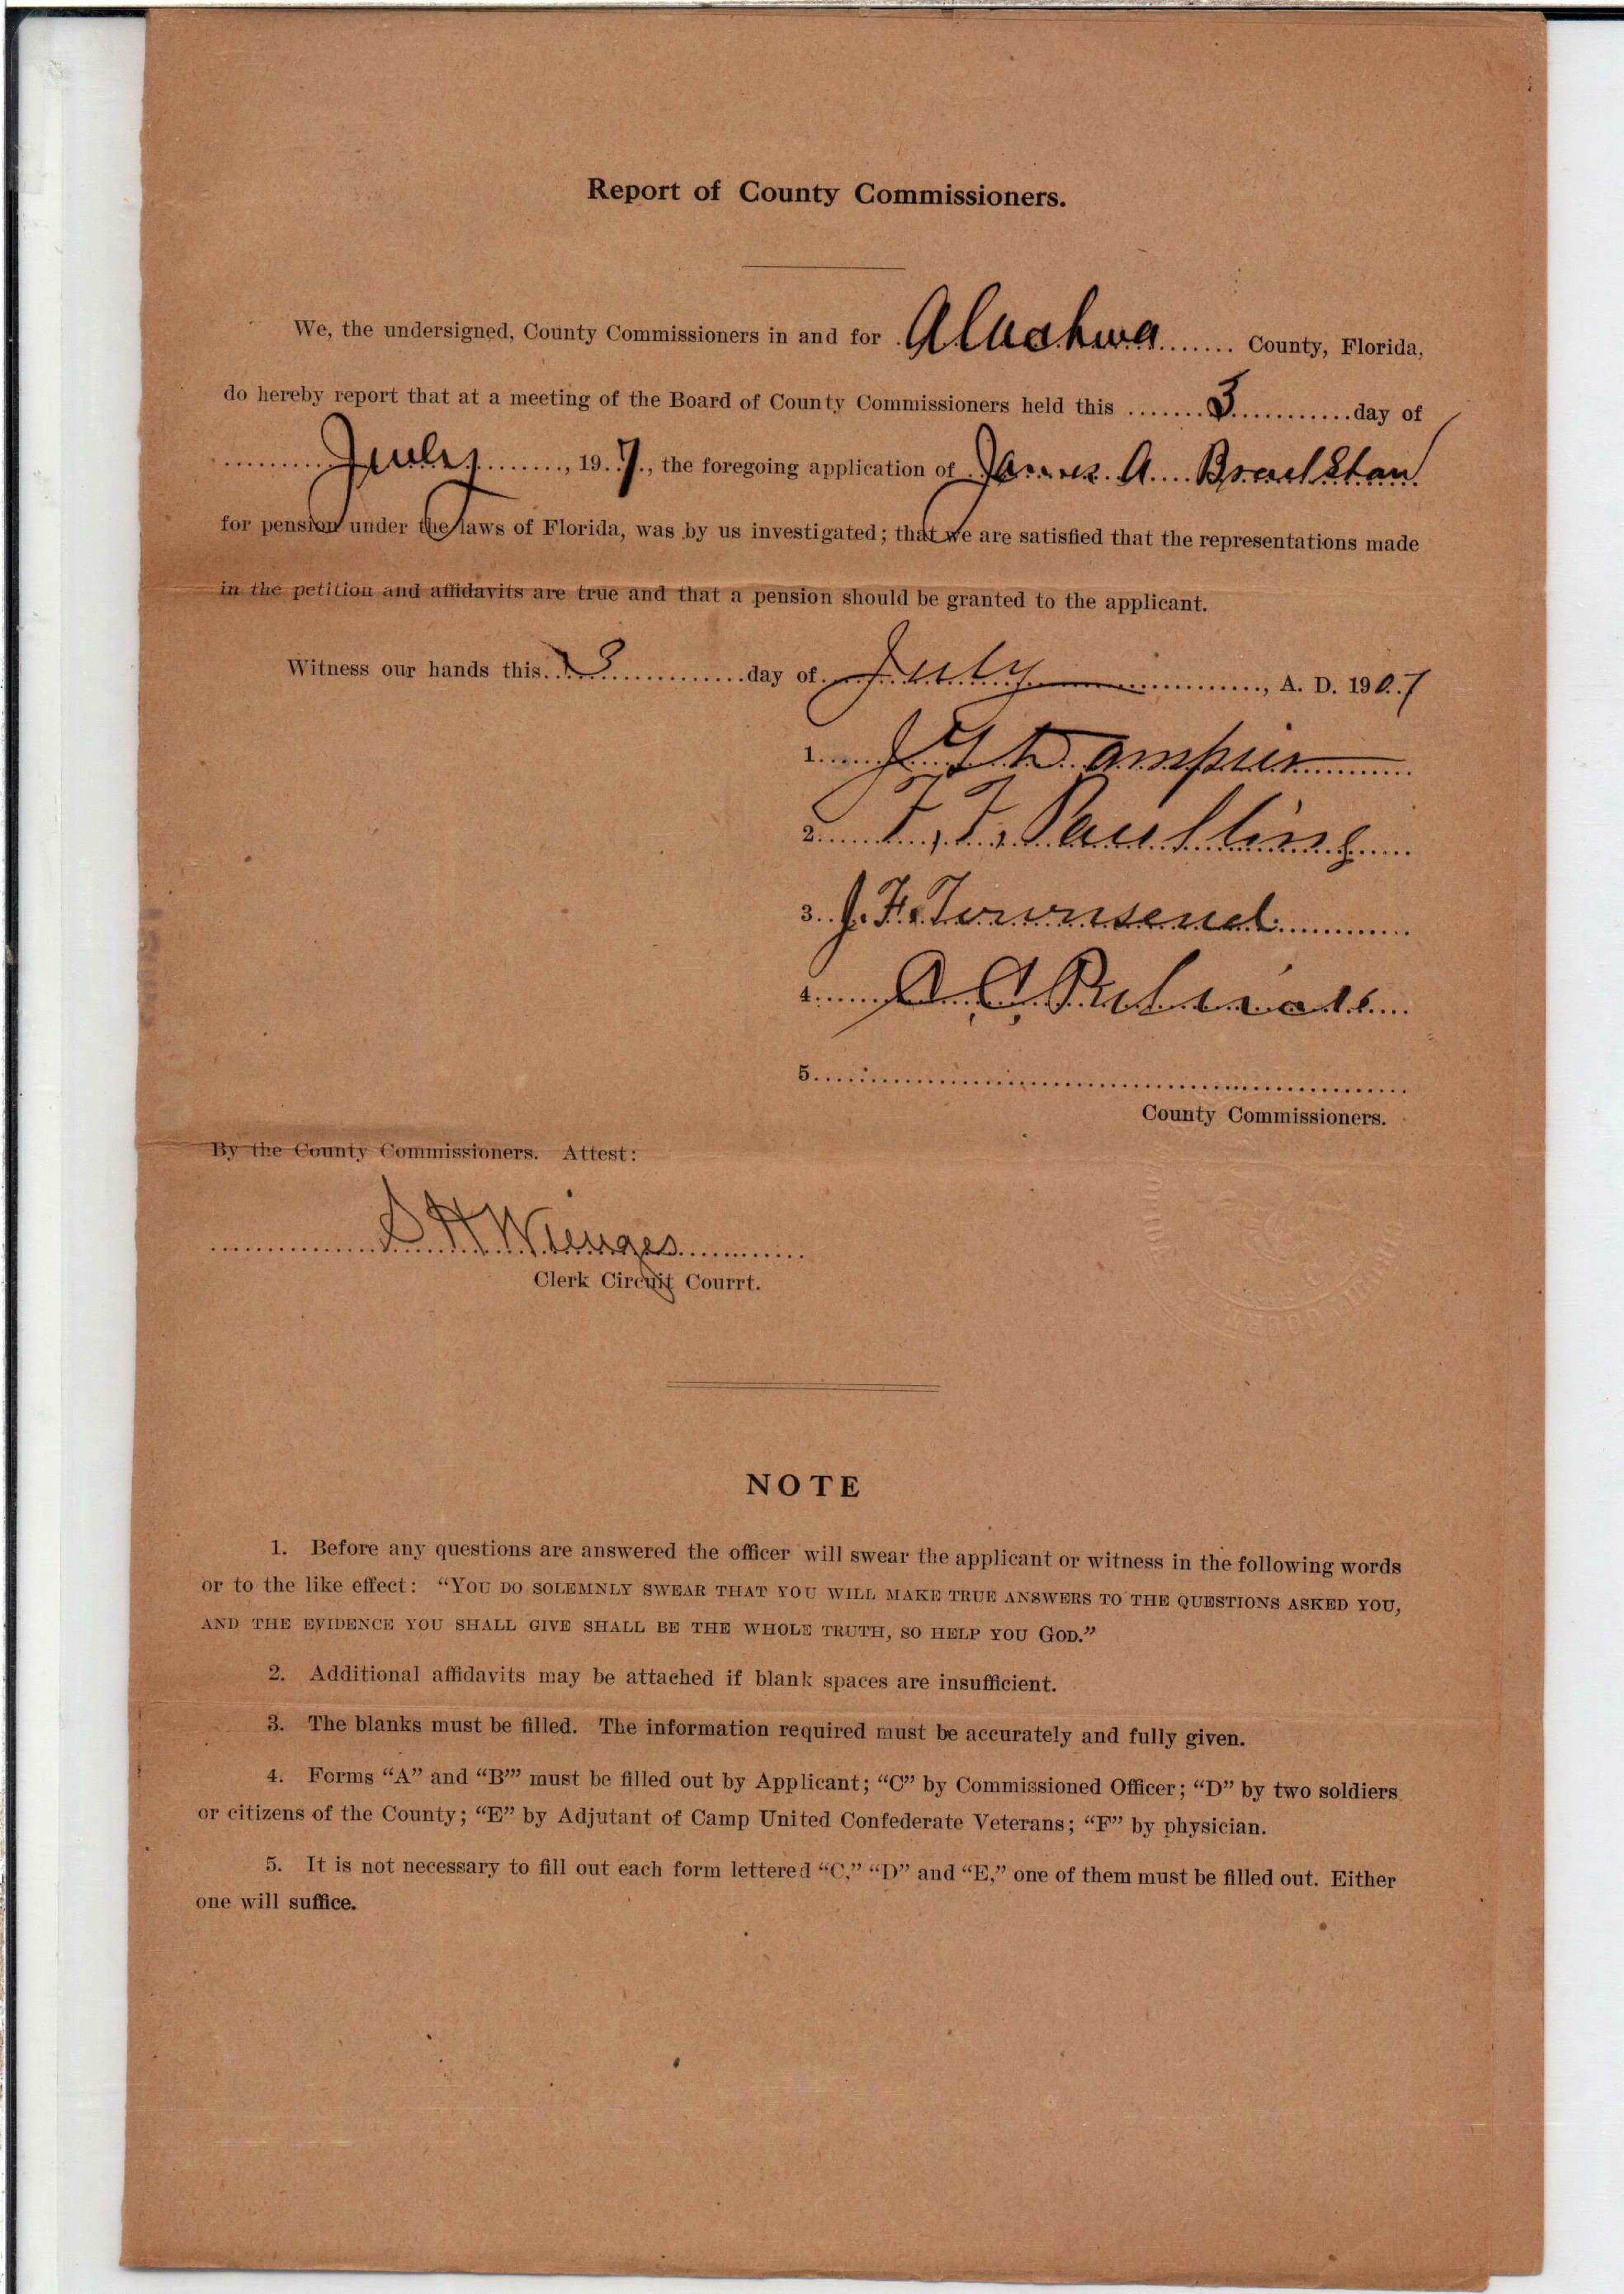 Report of County Commissioners.
We, the undersigned, County Commissioners in and for Aluahwa County, Florida,
do hereby report that at a meeting of the Board of County Commissioners held this 3 day of
July, 19 7, the foregoing application of James A.
for pension under the laws of Florida, was by us investigated; that we are satisfied that the representations made
in the petition and affidavits are true and that a pension should be granted to the applicant.
Witness our hands this 3 day of July, A. D. 1907
1. Dampier
2.
3. J. F. Townsend
4.
5.
County Commissioners.
By the County Commissioners. Attest:
S H Wienges
Clerk Circuit Courrt.
NOTE
1. Before any questions are answered the officer will swear the applicant or witness in the following words
or to the like effect: “YOU DO SOLEMNLY SWEAR THAT YOU WILL MAKE TRUE ANSWERS TO THE QUESTIONS ASKED YOU,
AND THE EVIDENCE YOU SHALL GIVE SHALL BE THE WHOLE TRUTH, SO HELP YOU GOD.”
2. Additional affidavits may be attached if blank spaces are insufficient.
3. The blanks must be filled. The information required must be accurately and fully given.
4. Forms “A” and “B”’ must be filled out by Applicant; “C” by Commissioned Officer; “D” by two soldiers
or citizens of the County; “E” by Adjutant of Camp United Confederate Veterans; “F” by physician.
5. It is not necessary to fill out each form lettered “C,” “D” and “E,” one of them must be filled out. Either
one will suffice.